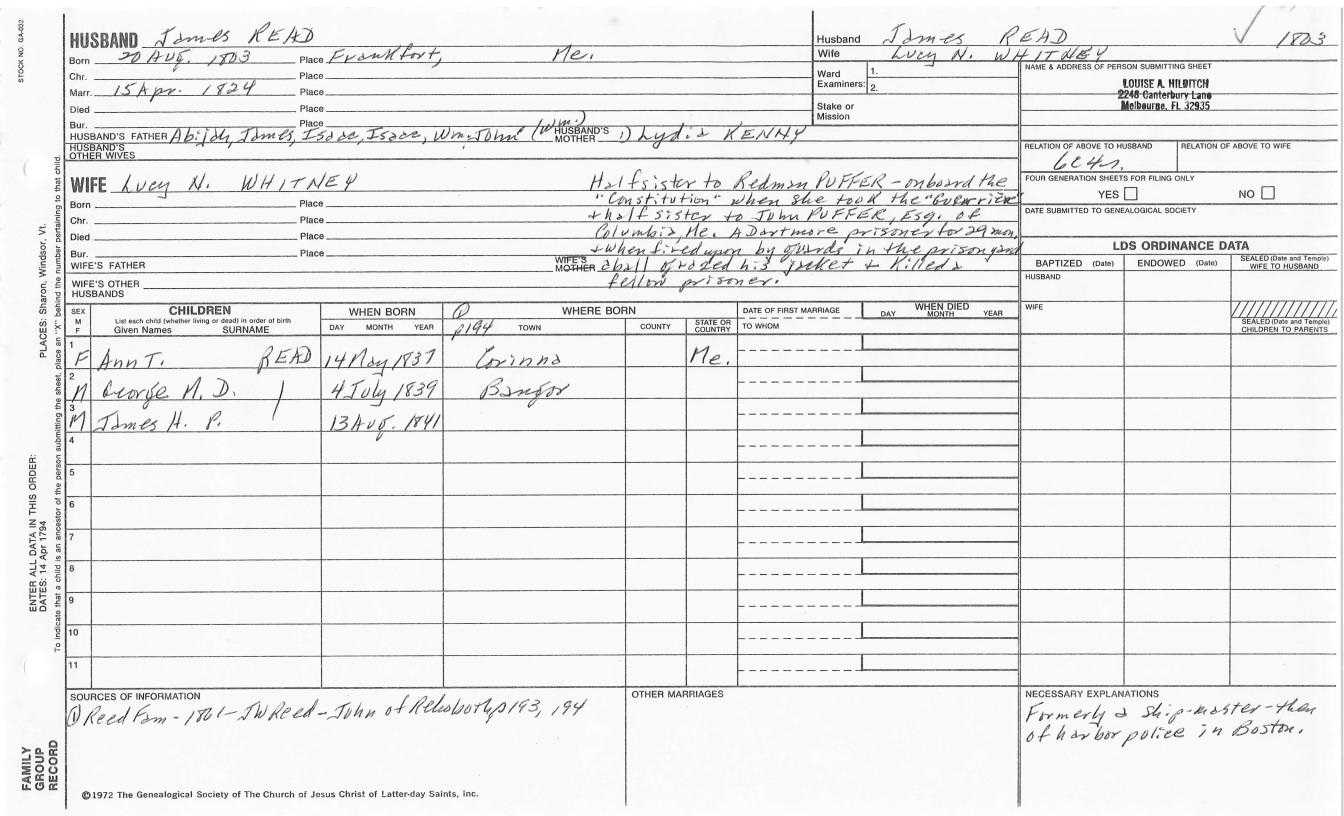 STOCK NO. GA-002
HUSBAND James READ
Born 20 Aug. 1803 Place Frankfort, Me.
Chr. Place
Marr. 15 Apr. 1824 Place
Died Place
Bur. Place
HUSBAND'S FATHER Abijah, James, Isaac, Isaac, Wm., John (Wm.) HUSBAND'S MOTHER 1) Lydia KENNY
HUSBAND'S OTHER WIVES
Husband James READ 1803
Wife Lucy N. WHITNEY
Ward Examiners: 1.
2.
Stake or Mission
NAME & ADDRESS OF PERSON SUBMITTING SHEET
LOUISE A. HILDITCH
2248 Canterbury Lane
Melbourne, FL 32935
RELATION OF ABOVE TO HUSBAND RELATION OF ABOVE TO WIFE
6C4r.
FOUR GENERATION SHEETS FOR FILING ONLY
YES NO
DATE SUBMITTED TO GENEALOGICAL SOCIETY
WIFE Lucy N. WHITNEY
Born Place
Chr. Place
Died Place
Bur. Place
WIFE'S FATHER WIFE'S MOTHER
WIFE'S OTHER HUSBANDS
Half sister to Redman PUFFER - onboard the
"Constitution" when she took the "Guerriere"
+ half sister to John PUFFER, Esq. of
Columbia, Me. A Dartmore prisoner for 29 mon.
+ when fired upon by guards in the prison yard
a ball grazed his jacket + killed a
fellow prisoner.
LDS ORDINANCE DATA
BAPTIZED (Date) ENDOWED (Date) SEALED (Date and Temple) WIFE TO HUSBAND
HUSBAND
WIFE
SEALED (Date and Temple) CHILDREN TO PARENTS
SEX M F CHILDREN List each child (whether living or dead) in order of birth Given Names SURNAME
WHEN BORN DAY MONTH YEAR
① p194 WHERE BORN TOWN COUNTY STATE OR COUNTRY
DATE OF FIRST MARRIAGE TO WHOM
WHEN DIED DAY MONTH YEAR
1 F Ann T. READ 14 May 1837 Corinna Me.
2 M George M. D. 4 July 1839 Bangor
3 M James H. P. 13 Aug. 1841
4
5
6
7
8
9
10
11
SOURCES OF INFORMATION
① Reed Fam - 1861 - JW Reed - John of Rehoboth p193, 194
OTHER MARRIAGES
NECESSARY EXPLANATIONS
Formerly a ship-master - then
of harbor police in Boston.
©1972 The Genealogical Society of The Church of Jesus Christ of Latter-day Saints, Inc.
FAMILY GROUP RECORD
ENTER ALL DATA IN THIS ORDER:
DATES: 14 Apr 1794
PLACES: Sharon, Windsor, Vt.
To indicate that a child is an ancestor of the person submitting the sheet, place an "X" behind the number pertaining to that child.